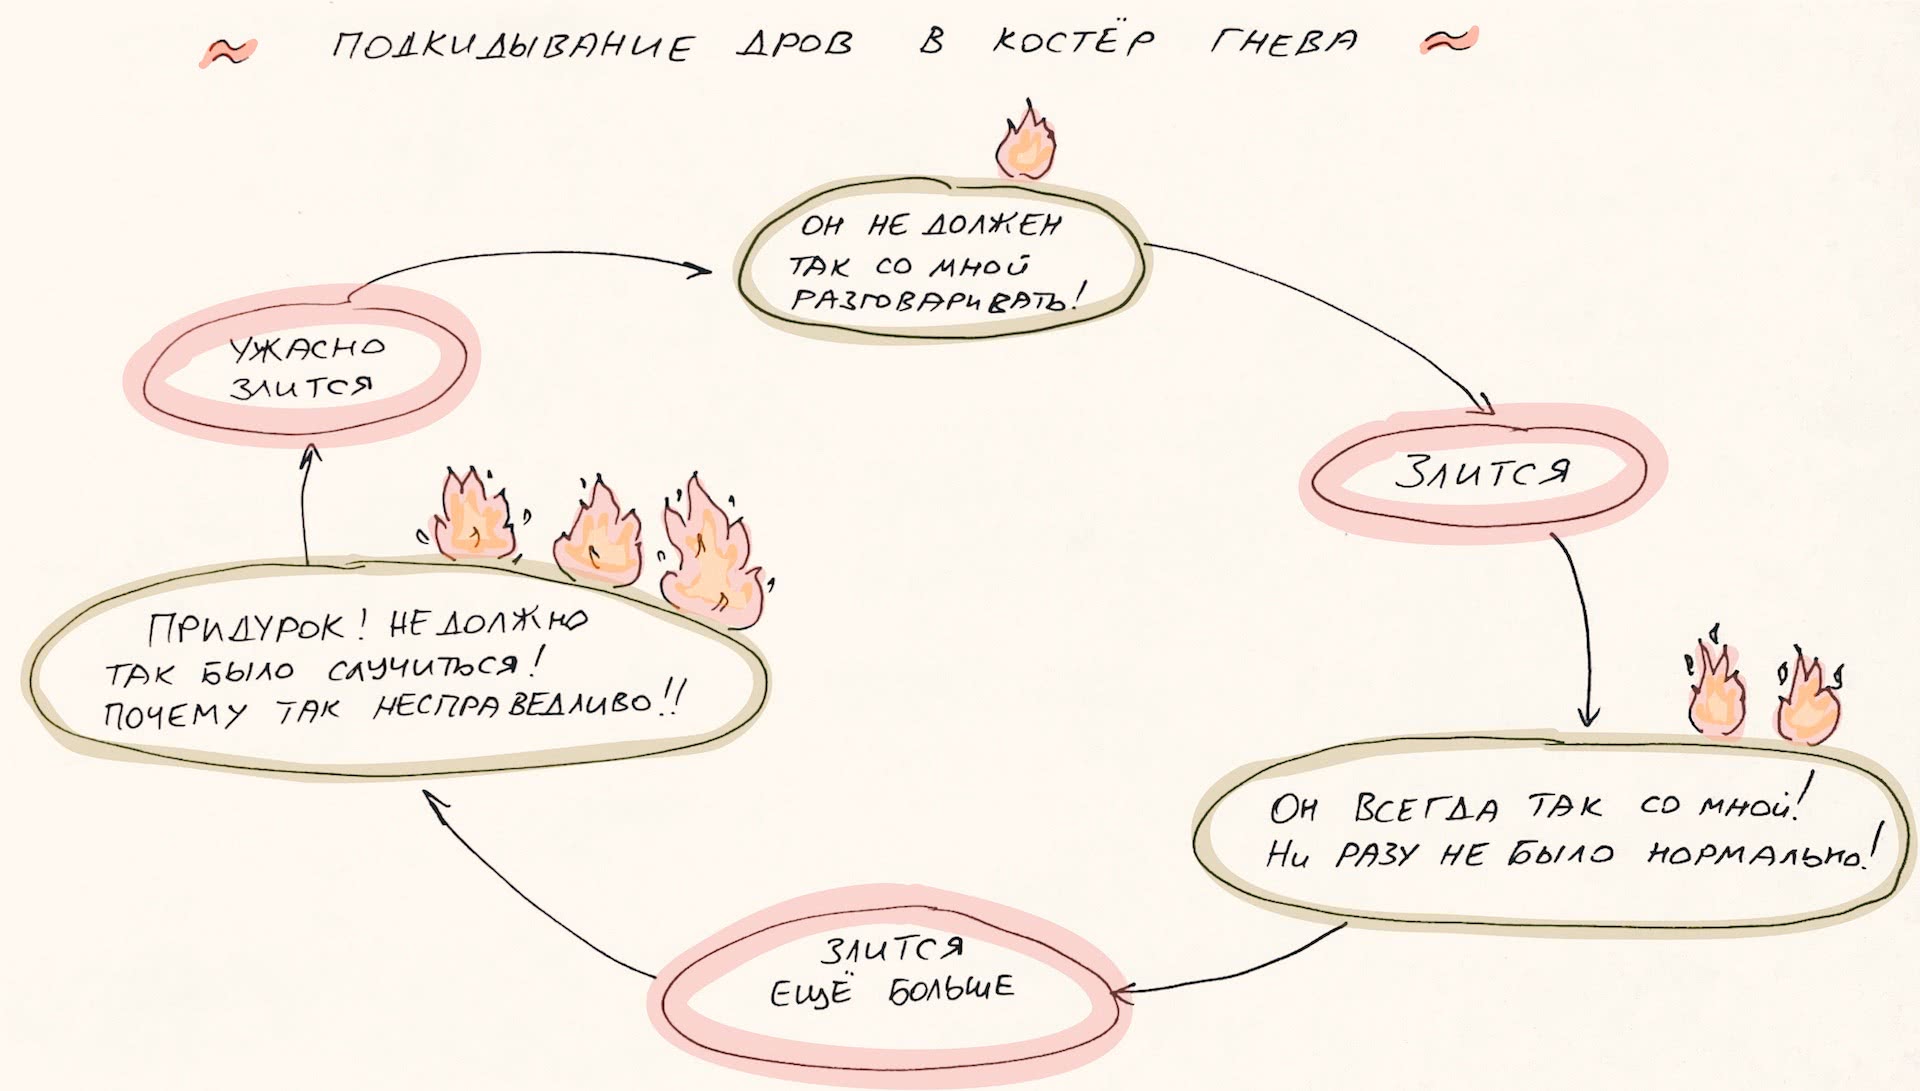 ~ ПОДКИДЫВАНИЕ ДРОВ В КОСТЁР ГНЕВА ~
ОН НЕ ДОЛЖЕН
ТАК СО МНОЙ
РАЗГОВАРИВАТЬ!
ЗЛИТСЯ
ОН ВСЕГДА ТАК СО МНОЙ!
НИ РАЗУ НЕ БЫЛО НОРМАЛЬНО!
ЗЛИТСЯ
ЕЩЁ БОЛЬШЕ
ПРИДУРОК! НЕ ДОЛЖНО
ТАК БЫЛО СЛУЧИТЬСЯ!
ПОЧЕМУ ТАК НЕСПРАВЕДЛИВО!!
УЖАСНО
ЗЛИТСЯ